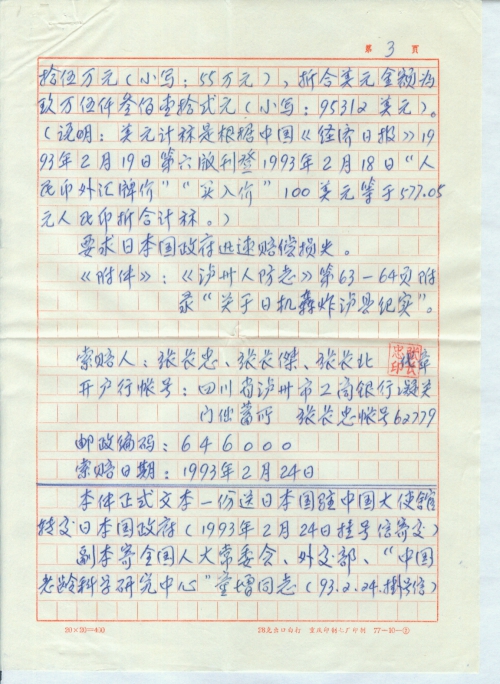 第 3 页
拾伍万元(小写:55万元),折合美元金额为
玖万伍仟叁佰壹拾弍元(小写:95312美元)。
(说明:美元计祘是根据中国《经济日报》19
93年2月19日第六版刊登1993年2月18日“人
民币外汇牌价”“买入价”100美元等于577.05
元人民币折合计祘。)
要求日本国政府迅速赔偿损失。
《附件》:《泸州人防志》第63—64页附
录“关于日机轰炸泸县纪实”。
索赔人:张长忠、张长傑、张长北
开户行帐号:四川省泸州市工商银行凝光
门储蓄所 张长忠帐号62779
邮政编码:646000
索赔日期:1993年2月24日
本件正式文本一份送日本国驻中国大使馆
转交日本国政府(1993年2月24日挂号信寄交)
副本寄全国人大常委会、外交部、“中国
老龄科学研究中心”童增同志(93.2.24.掛号信)
20×20=400